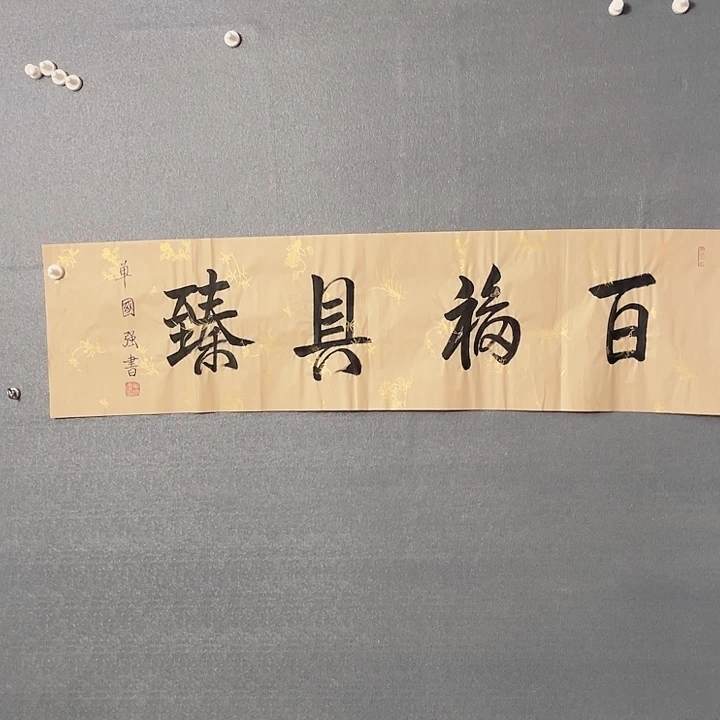 百福具臻
单國强書